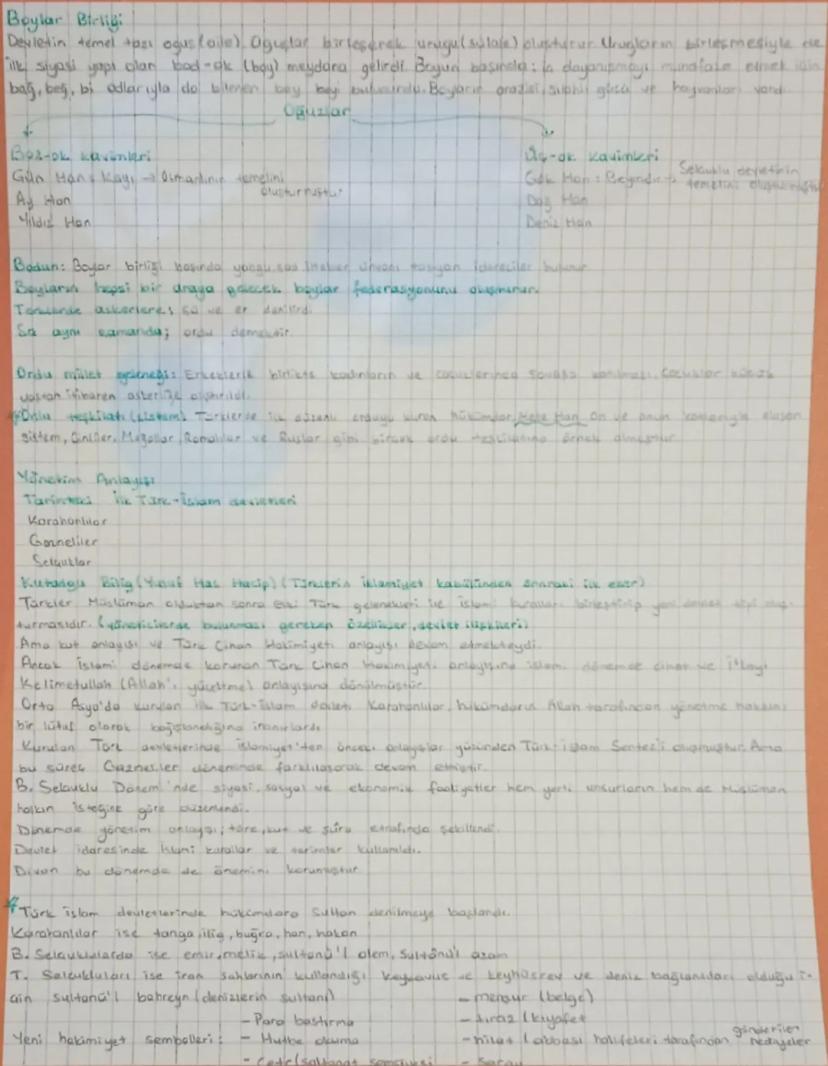 Boylar Birliği
Devletin temel taşı oguş(aile). Oğuşlar birleşerek urugu(sülale) oluşturur. Urugların birleşmesiyle de
ilk siyasi yapı olan bod-ok (boy) meydana gelirdi. Boyun başında; iç dayanışmayı muhafaza etmek için
bağ, beğ, bi adlarıyla da bilinen boy beyi bulunurdu. Boyların arazisi, silahlı gücü ve hayvanları vardı.
Oğuzlar
Boz-ok kavimleri
Üç-ok kavimleri
Gün Han: Kayı → Osmanlının temelini oluşturmuştur
Gök Han: Bayındır → Selçuklu devletinin temelini oluşturmuştur
Ay Han
Dağ Han
Yıldız Han
Deniz Han
Bodun: Boylar birliği başında yabgu, şad, ilteber ünvanı taşıyan idareciler bulunur.
Boyların hepsi bir araya gelecek boylar federasyonunu oluşturur.
Türklerde askerlere; sü ve er denilirdi.
Sü aynı zamanda; ordu demektir.
Ordu millet geleneği: Erkeklerle birlikte kadınların ve çocuklarında savaşa katılması. Çocuklar küçük
yaştan itibaren askerliğe alıştırıldı.
*Ordu teşkilatı (sistem) Türklerde ilk düzenli orduyu kuran hükümdar, Mete Han. On ve onun katlarıyla oluşan
sistem, Çinliler, Moğollar, Romalılar ve Ruslar gibi birçok ordu teşkilatına örnek olmuştur.
Yönetim Anlayışı
Tarihteki ilk Türk-İslam devletleri
Karahanlılar
Gazneliler
Selçuklar
Kutadgu Bilig (Yusuf Has Hacip) (Türklerin islamiyet kabülünden sonraki ilk eser)
Türkler Müslüman olduktan sonra Eski Türk gelenekleri ile islami kuralları birleştirip yeni devlet tipi oluş-
turmasıdır. (yöneticilerde bulunması gereken özellikler, devlet ilişkileri)
Ama kut anlayışı ve Türk Cihan Hakimiyeti anlayışı devam etmekteydi.
Ancak İslami dönemde korunan Türk Cihan Hakimiyeti anlayışına islami dönemde cihat ve İ'layı
Kelimetullah (Allah'ı yüceltme) anlayışına dönülmüştür.
Orta Asya'da kurulan ilk Türk-İslam devleti Karahanlılar, hükümdarın Allah tarafından yönetme hakkını
bir lütuf olarak bağışlandığına inanırlardı.
Kurulan Türk devletlerinde islamiyet'ten önceki anlayışlar yüzünden Türk-islam Sentez'i oluşmuştur. Ama
bu süreç Gazneliler döneminde farklılaşarak devam etmiştir.
B. Selçuklu Dönem'inde siyasi, sosyal ve ekonomik faaliyetler hem yerli unsurların hem de Müslüman
halkın isteğine göre düzenlendi.
Dönemde yönetim anlayışı; töre, kut ve şûra etrafında şekillendi.
Devlet idaresinde islami kurallar ve terimler kullanıldı.
Divan bu dönemde de önemini korumuştur.
*Türk islam devletlerinde hükümdara Sultan denilmeye başlandı.
Karahanlılar ise tanga, ilig, buğra, han, hakan
B. Selçuklularda ise emir, melik, sultanü'l alem, sultânü'l azam
T. Selçukluları ise iran şahlarının kullandığı keykavus ve keyhüsrev ve deniz bağlantıları olduğu i-
çin sultanü'l bahreyn (denizlerin sultanı)
Yeni hakimiyet sembolleri:
- Para bastırma
- Hutbe okuma
- Çetr (saltanat şemsiyesi
- menşur (belge)
- tıraz (kıyafet
- hilat (abbasi halifeleri tarafından gönderilen hediyeler
- Saray